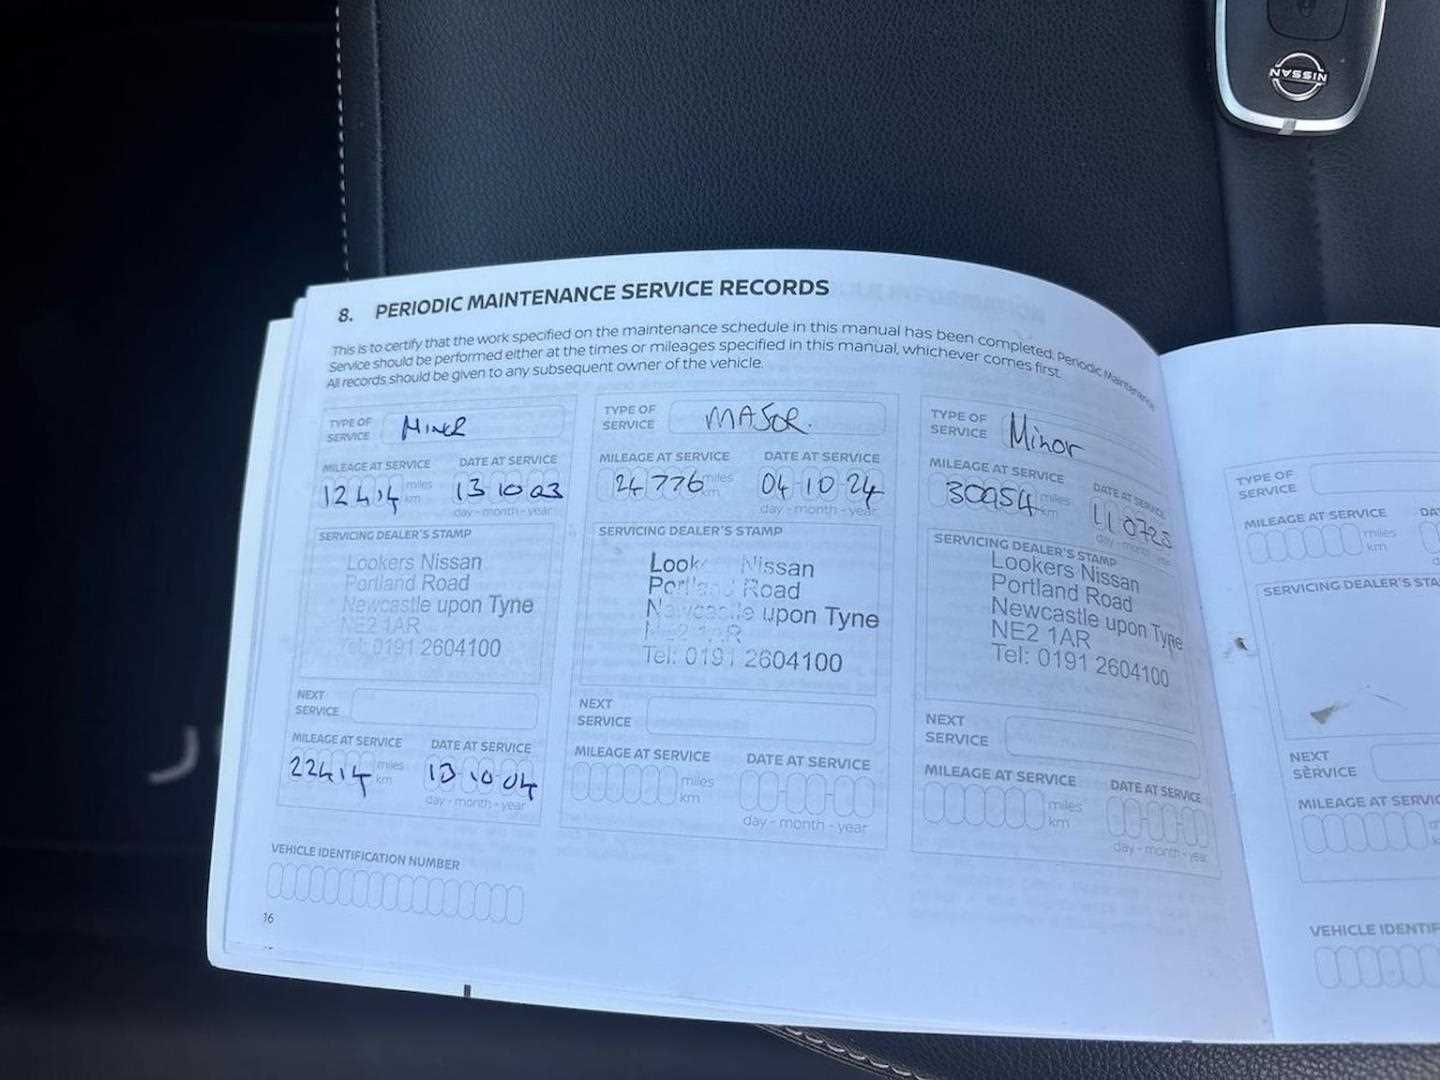 NISSAN
8. PERIODIC MAINTENANCE SERVICE RECORDS
This is to certify that the work specified on the maintenance schedule in this manual has been completed. Periodic Maintenance
Service should be performed either at the times or mileages specified in this manual, whichever comes first.
All records should be given to any subsequent owner of the vehicle.
TYPE OF SERVICE MINOR
MILEAGE AT SERVICE DATE AT SERVICE
12414 miles km 13 10 03
day - month - year
SERVICING DEALER'S STAMP
Lookers Nissan
Portland Road
Newcastle upon Tyne
NE2 1AR
Tel: 0191 2604100
NEXT SERVICE
MILEAGE AT SERVICE DATE AT SERVICE
22414 miles km 13 10 04
day - month - year
VEHICLE IDENTIFICATION NUMBER
16
TYPE OF SERVICE MAJOR.
MILEAGE AT SERVICE DATE AT SERVICE
24776 miles km 04-10-24
day - month - year
SERVICING DEALER'S STAMP
Look Nissan
Portland Road
Newcastle upon Tyne
NE2 1AR
Tel: 0191 2604100
NEXT SERVICE
MILEAGE AT SERVICE DATE AT SERVICE
miles km
day - month - year
TYPE OF SERVICE Minor
MILEAGE AT SERVICE DATE AT SERVICE
30954 miles km 110725
day - month - year
SERVICING DEALER'S STAMP
Lookers Nissan
Portland Road
Newcastle upon Tyne
NE2 1AR
Tel: 0191 2604100
NEXT SERVICE
MILEAGE AT SERVICE DATE AT SERVICE
miles km
day - month - year
TYPE OF SERVICE
MILEAGE AT SERVICE DA
miles km
SERVICING DEALER'S STA
NEXT SERVICE
MILEAGE AT SERVIC
VEHICLE IDENTIF